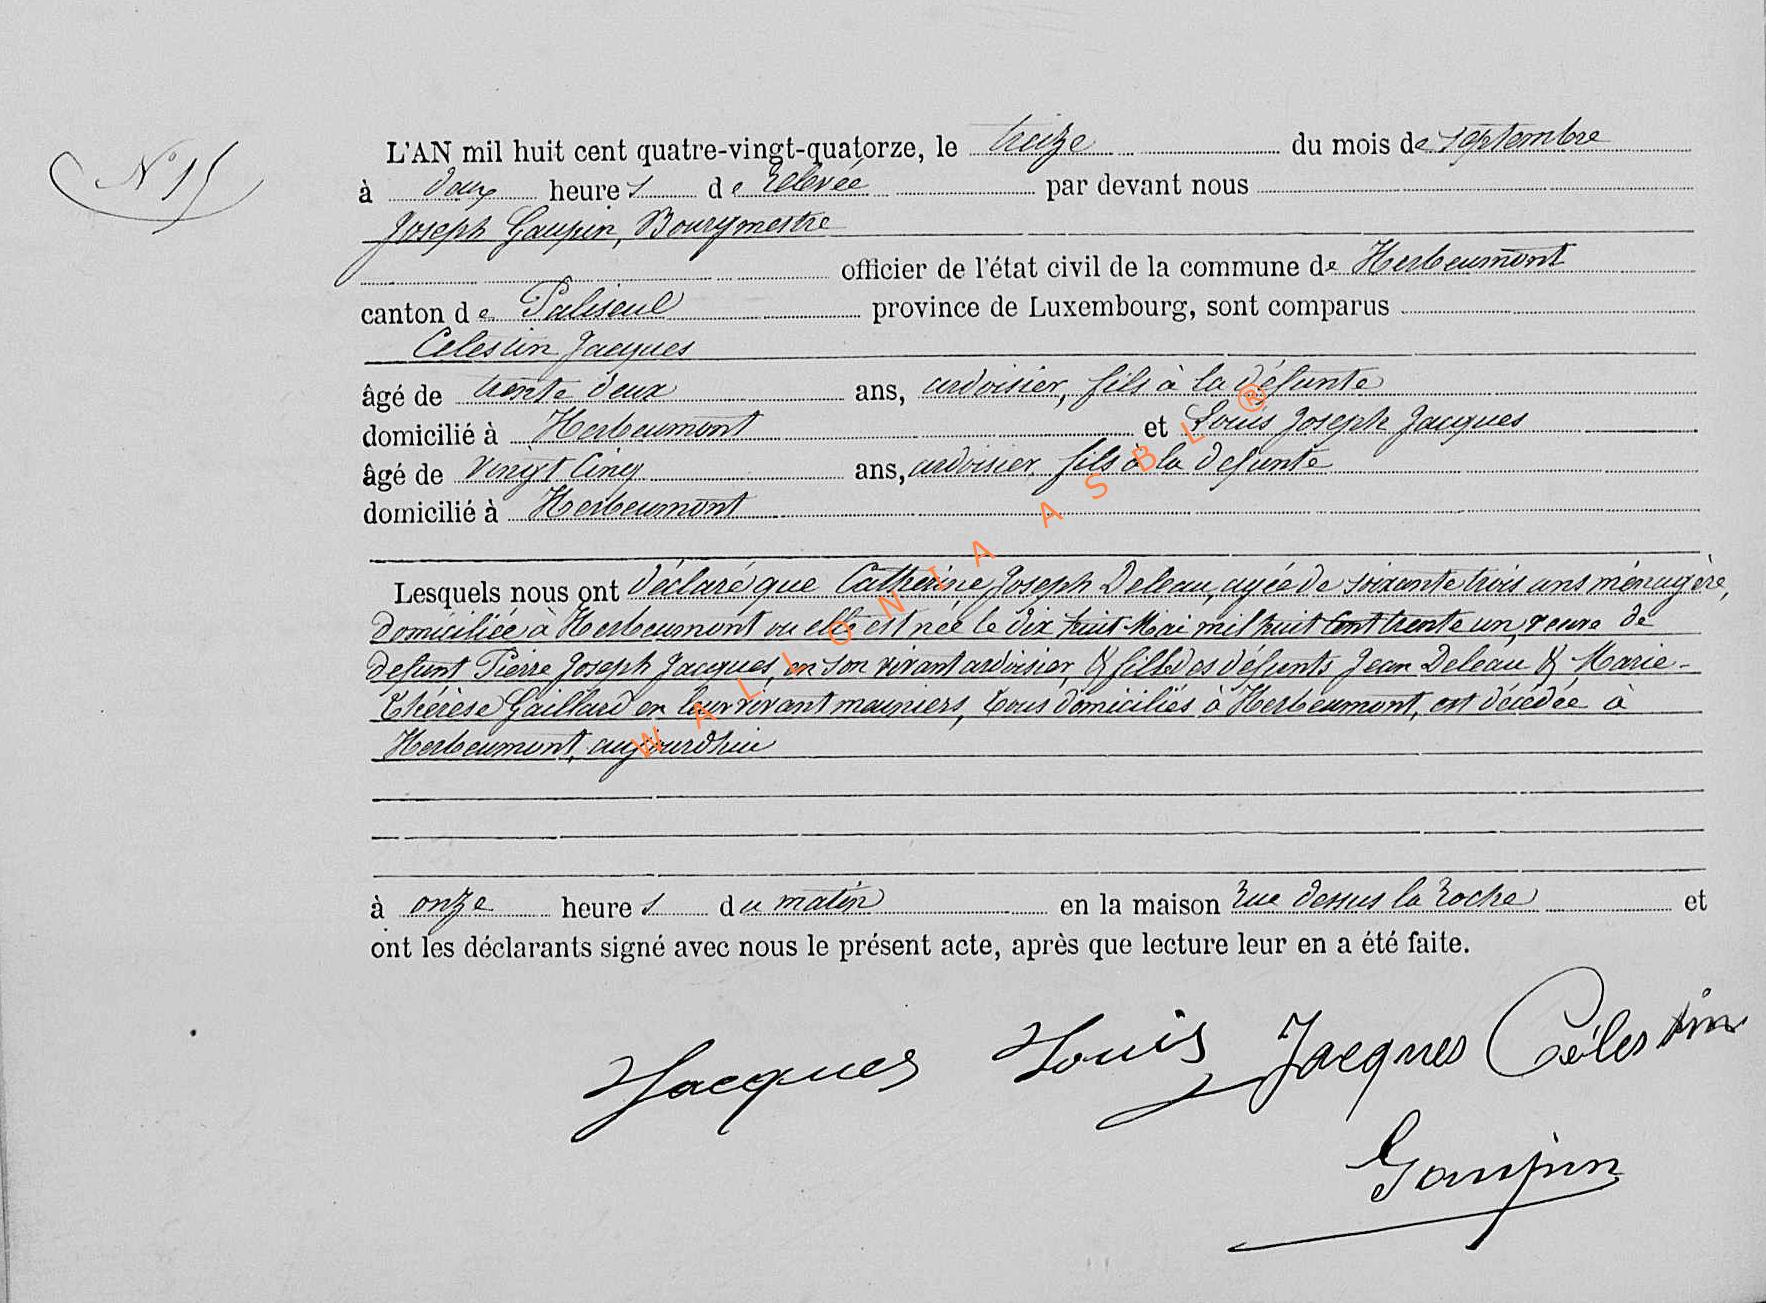 N° 15
L'AN mil huit cent quatre-vingt-quatorze, le treize du mois de septembre
à deux heures de relevée par devant nous
Joseph Gaupin, Bourgmestre
officier de l'état civil de la commune de Herbeumont
canton de Paliseul province de Luxembourg, sont comparus
Celestin Jacques
âgé de trente deux ans, ardoisier, fils à la défunte
domicilié à Herbeumont et Louis Joseph Jacques
âgé de vingt cinq ans, ardoisier fils à la defunte
domicilié à Herbeumont
Lesquels nous ont déclaré que Catherine Joseph Deleau, agée de soixante trois ans ménagère,
domiciliée à Herbeumont ou elle est née le dix huit Mai mil huit cent trente un, veuve de
defunt Pierre Joseph Jacques, en son vivant ardoisier, & fille des défunts Jean Deleau & Marie-
Thérèse Gaillard en leur vivant meuniers, tous domiciliés à Herbeumont, est décédée à
Herbeumont, aujourdhui
à onze heures du matin en la maison rue dessus la roche et
ont les déclarants signé avec nous le présent acte, après que lecture leur en a été faite.
Jacques Louis Jacques Célestin
Gaupin
WALLONIA ASBL ®